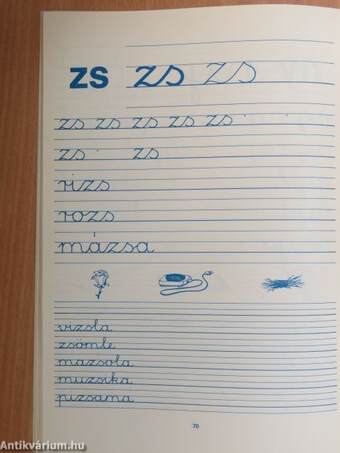 zs zs zs
zs zs zs zs zs
zs zs
rizs
rozs
mázsa
vizsla
zsömle
mazsola
muzsika
pizsama
70
Antikvárium.hu